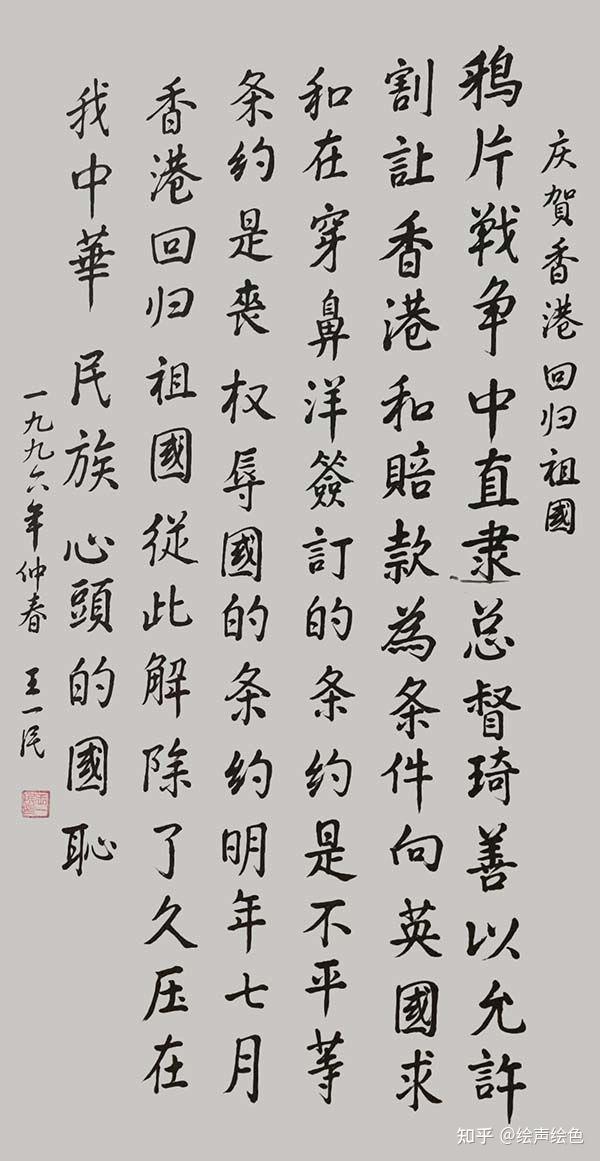 庆賀香港回归祖國
鴉片戰争中直隶总督琦善以允許
割让香港和賠款為条件向英國求
和在穿鼻洋簽訂的条约是不平等
条约是喪权辱國的条约明年七月
香港回归祖國從此解除了久压在
我中華民族心頭的國恥
一九九六年仲春 王一民
知乎 @绘声绘色